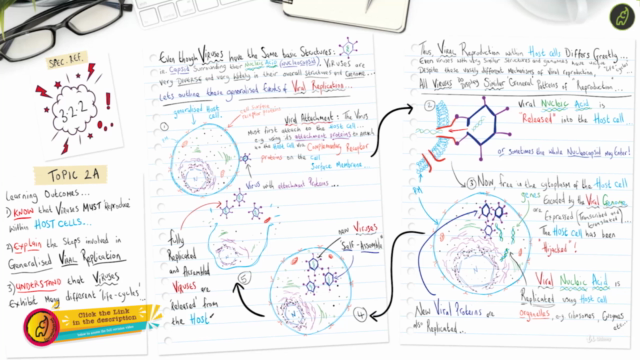 SPEC. REF.
3·2·2
TOPIC 2A
Learning Outcomes...
1) KNOW that Viruses MUST Reproduce
within HOST CELLS...
2) Explain the Steps involved in
Generalised Viral Replication...
3) UNDERSTAND that VIRUSES
Exhibit Many different 'life-cycles'...
Click the Link
in the description
Even though Viruses have the Same basic Structures:
ie. Capsid Surrounding their Nucleic Acid (nucleocapsid), Viruses are
Very Diverse and Vary Widely in their overall Structures and Genome...
Lets outline these generalised Events of Viral Replication...
generalised Host
Cell.
Cell Surface
Receptor proteins
①
Viral Attachment: The Virus
must first attach to the Host Cell...
e.g. using its attachment proteins or
on the Host Cell Complementary Receptor
proteins on the Cell
Surface Membrane
Virus with Attachment Proteins...
fully
Replicated
and Assembled
Viruses are
Released from
the Host
New Viruses
'Self-Assemble'
⑤
④
Thus, Viral Reproduction within Host Cells Differs Greatly...
Even viruses with very Similar Structures and genomes
Despite these widely different Mechanisms of Viral reproduction,
All Viruses Display Similar General Patterns of Reproduction...
②
Viral Nucleic Acid is
"Released" into the Host
Cell
or sometimes the whole Nucleocapsid may Enter!
③ Now free in the cytoplasm of the Host Cell
genes Encoded by the Viral Genome
are Expressed (Transcribed and
Translated)...
The Host Cell has been
"Hijacked"!
Viral Nucleic Acid is
Replicated using Host Cell
organelles, e.g. ribosomes, Enzymes
etc...
New Viral Proteins are
also Replicated...